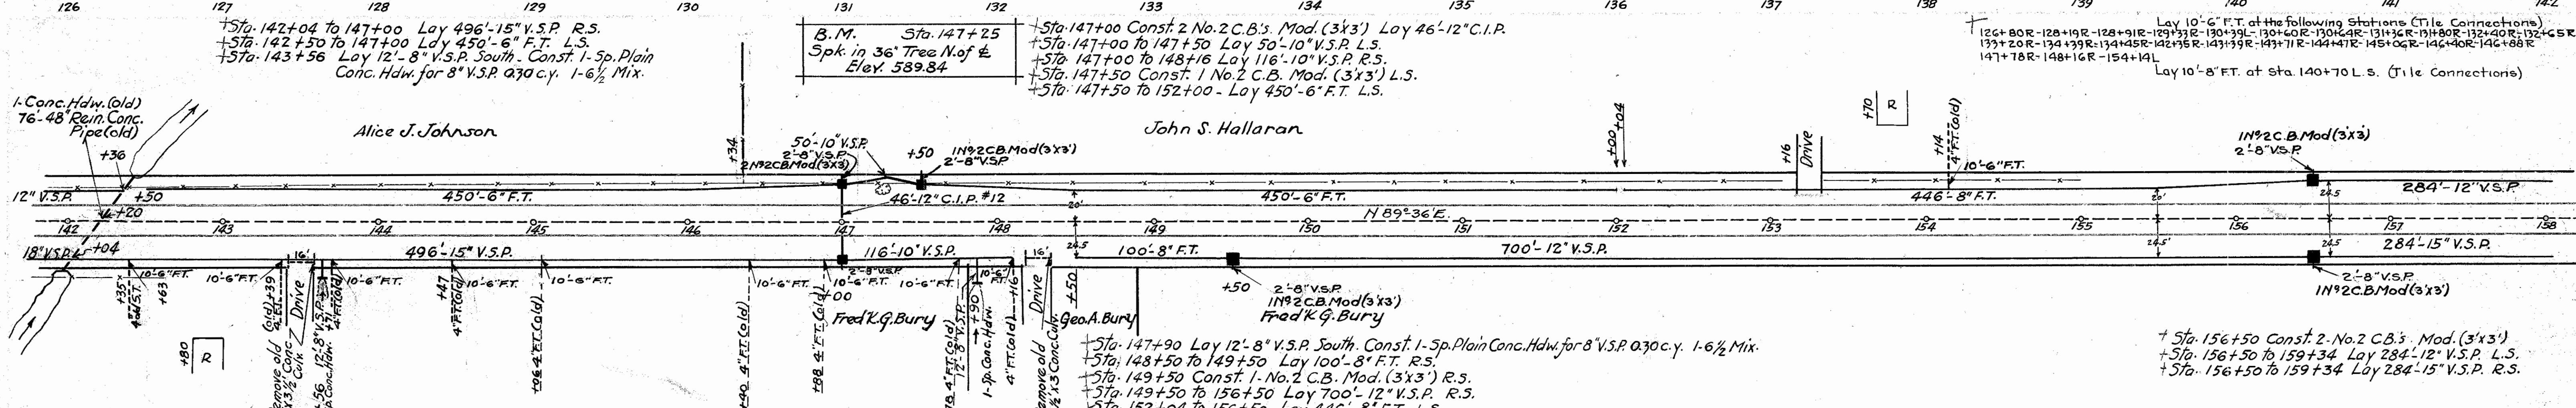 126 127 128 129 130 131 132 133 134 135 136 137 138 139 140 141 142
+Sta. 142+04 to 147+00 Lay 496'-15" V.S.P. R.S.
+Sta. 142+50 to 147+00 Lay 450'-6" F.T. L.S.
+Sta. 143+56 Lay 12'-8" V.S.P. South. Const. 1-Sp. Plain
Conc. Hdw. for 8" V.S.P. 0.30 c.y. 1-6½ Mix.
B.M. Sta. 147+25
Spk in 36" Tree N. of ℄
Elev. 589.84
+Sta. 147+00 Const. 2 No. 2 C.B.'s Mod. (3'x3') Lay 46'-12" C.I.P.
+Sta. 147+00 to 147+50 Lay 50'-10" V.S.P. L.S.
+Sta. 147+00 to 148+16 Lay 116'-10" V.S.P. R.S.
+Sta. 147+50 Const. 1 No. 2 C.B. Mod. (3'x3') L.S.
+Sta. 147+50 to 152+00 - Lay 450'-6" F.T. L.S.
+ Lay 10'-6" F.T. at the following Stations (Tile Connections)
126+80R-128+19R-128+91R-129+33R-130+39L-130+60R-130+64R-131+36R-131+80R-132+40R-132+65R
133+20R-134+39R-134+45R-142+35R-143+39R-143+71R-144+47R-145+06R-146+40R-146+88R
147+78R-148+16R-154+14L
Lay 10'-8" F.T. at Sta. 140+70 L.S. (Tile Connections)
1-Conc. Hdw. (old)
76'-48" Rein. Conc.
Pipe (old)
+36
Alice J. Johnson
+34
50'-10" V.S.P.
2'-8" V.S.P.
2 Nº 2 C.B. Mod (3'x3')
+50
1 Nº 2 C.B. Mod (3'x3')
2'-8" V.S.P.
John S. Hallaran
+00
+04
+16
Drive
+70
R
+14
4" F.T. (old)
10'-6" F.T.
1 Nº 2 C.B. Mod (3'x3')
2'-8" V.S.P.
12" V.S.P.
+50
450'-6" F.T.
46'-12" C.I.P. #12
20'
450'-6" F.T.
446'-8" F.T.
20'
24.5
284'-12" V.S.P.
+20
N 89°-36' E.
142 143 144 145 146 147 148 149 150 151 152 153 154 155 156 157 158
18" V.S.P.
+04
16'
496'-15" V.S.P.
116'-10" V.S.P.
16'
24.5
100'-8" F.T.
700'-12" V.S.P.
24.5'
24.5
284'-15" V.S.P.
10'-6" F.T.
10'-6" F.T.
10'-6" F.T.
10'-6" F.T.
10'-6" F.T.
10'-6" F.T.
2'-8" V.S.P.
10'-6" F.T.
10'-6" F.T.
10'-6" F.T.
+35
+63
+39
4" F.T. (old)
Drive
+71
4" F.T. (old)
+47
4" F.T. (old)
+06 4" F.T. (old)
+40 4" F.T. (old)
+88 4" F.T. (old)
+00
Fred K. G. Bury
78 4" F.T. (old)
12'-8" V.S.P.
+90
1-Sp. Conc. Hdw.
+16
4" F.T. (old)
Drive
+50
Geo. A. Bury
+50
2'-8" V.S.P.
1 Nº 2 C.B. Mod (3'x3')
Fred K. G. Bury
2'-8" V.S.P.
1 Nº 2 C.B. Mod (3'x3')
+80
R
emove old
x3½' Conc.
Culv.
+56 12'-8" V.S.P.
Sp. Conc. Hdw.
emove old
½'x3' Conc. Culv.
+Sta. 147+90 Lay 12'-8" V.S.P. South. Const. 1-Sp. Plain Conc. Hdw. for 8" V.S.P. 0.30 c.y. 1-6½ Mix.
+Sta. 148+50 to 149+50 Lay 100'-8" F.T. R.S.
+Sta. 149+50 Const. 1-No. 2 C.B. Mod. (3'x3') R.S.
+Sta. 149+50 to 156+50 Lay 700'-12" V.S.P. R.S.
+Sta. 152+04 to 156+50 Lay 446'-8" F.T. L.S.
+Sta. 156+50 Const. 2-No. 2 C.B.'s Mod. (3'x3')
+Sta. 156+50 to 159+34 Lay 284'-12" V.S.P. L.S.
+Sta. 156+50 to 159+34 Lay 284'-15" V.S.P. R.S.